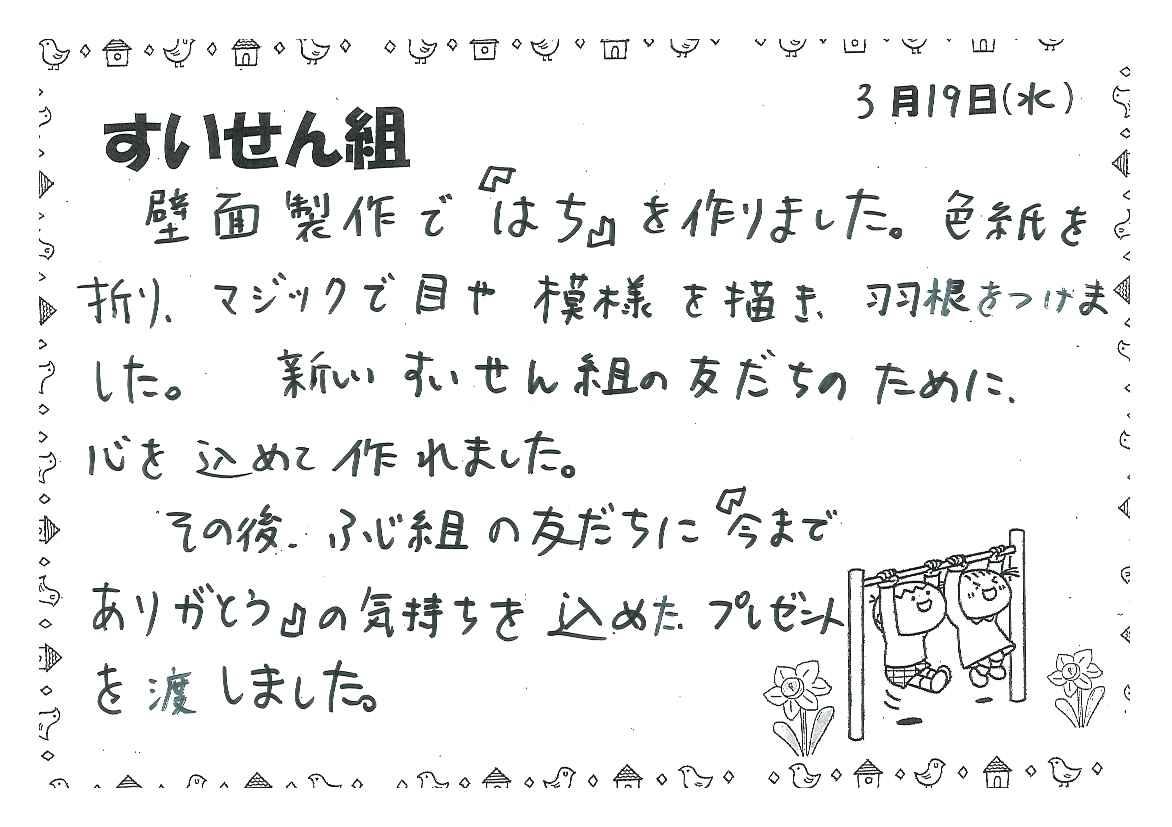 3月19日(水)
すいせん組
壁面製作で『はち』を作りました。色紙を
折り、マジックで目や模様を描き、羽根をつけま
した。 新しいすいせん組の友だちのために、
心を込めて作れました。
その後、ふじ組の友だちに『今まで
ありがとう』の気持ちを込めた、プレゼント
を渡しました。